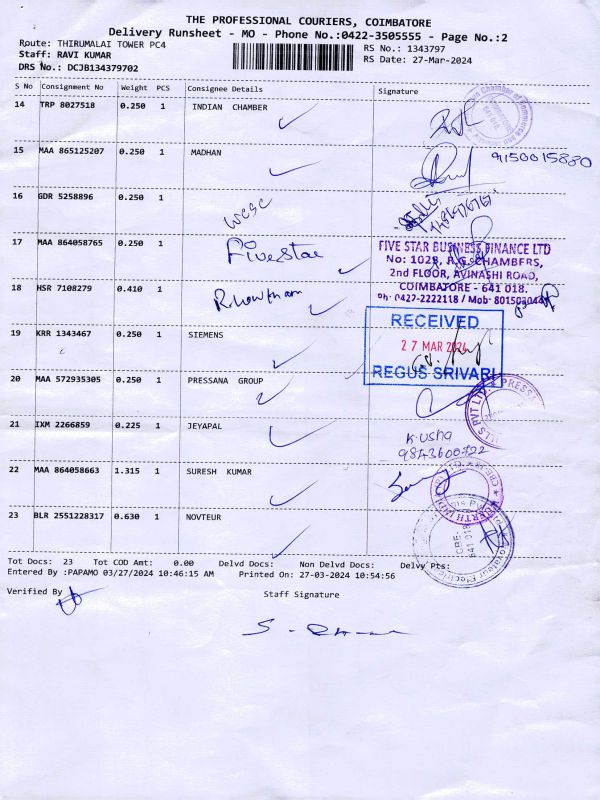 THE PROFESSIONAL COURIERS, COIMBATORE
Delivery Runsheet - MO - Phone No.:0422-3505555 - Page No.:2
Route: THIRUMALAI TOWER PC4
RS No.: 1343797
Staff: RAVI KUMAR
RS Date: 27-Mar-2024
DRS No.: DCJB134379702
S No Consignment No Weight PCS Consignee Details Signature
14 TRP 8027518 0.250 1 INDIAN CHAMBER
15 MAA 865125207 0.250 1 MADHAN 9150015880
16 GDR 5258896 0.250 1 wcsc
17 MAA 864058765 0.250 1 Fivestar
FIVE STAR BUSINESS FINANCE LTD
No: 1028, CHAMBERS,
2nd FLOOR, AVINASHI ROAD,
COIMBATORE - 641 018.
Ph: 0422-2222118 / Mob:
18 HSR 7108279 0.410 1
19 KRR 1343467 0.250 1 SIEMENS
RECEIVED
27 MAR 2024
REGUS SRIVARI
20 MAA 572935305 0.250 1 PRESSANA GROUP
21 IXM 2266859 0.225 1 JEYAPAL
K. usha
22 MAA 864058663 1.315 1 SURESH KUMAR
23 BLR 2551228317 0.630 1 NOVTEUR
Tot Docs: 23 Tot COD Amt: 0.00 Delvd Docs: Non Delvd Docs: Delvy Pts:
Entered By :PAPAMO 03/27/2024 10:46:15 AM Printed On: 27-03-2024 10:54:56
Verified By
Staff Signature